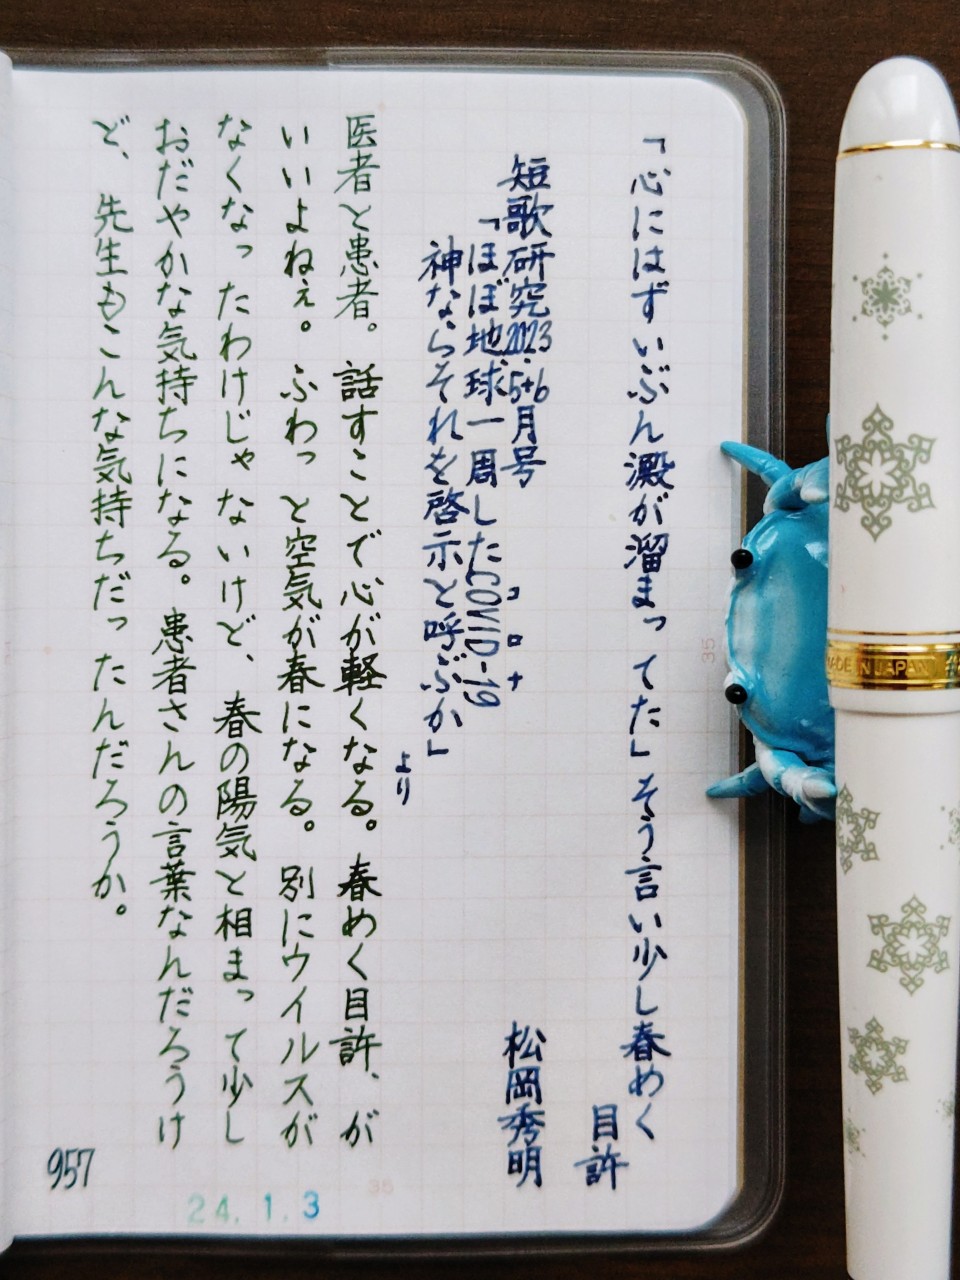 「心にはずいぶん澱が溜まってた」そう言い少し春めく
目許
短歌研究2023.5+6月号
松岡秀明
「ほぼ地球一周したCOVID-19
コロナ
神ならそれを啓示と呼ぶか」
より
医者と患者。話すことで心が軽くなる。春めく目許、が
いいよねぇ。ふわっと空気が春になる。別にウイルスが
なくなったわけじゃないけど、春の陽気と相まって少し
おだやかな気持ちになる。患者さんの言葉なんだろうけ
ど、先生もこんな気持ちだったんだろうか。
957
24.1.3
35
35
MADE IN JAPAN